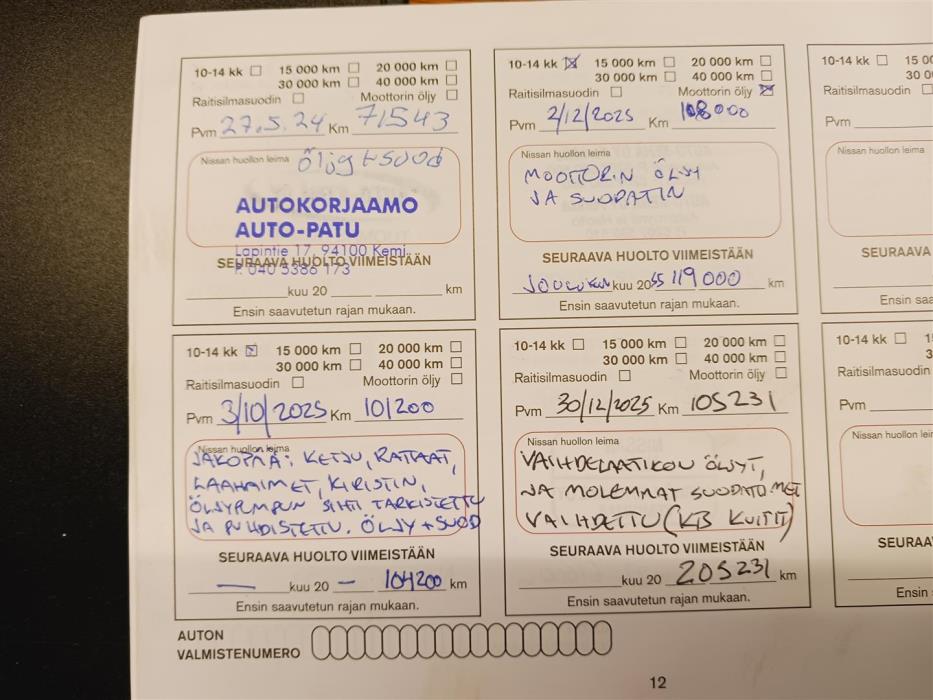 10-14 kk 15 000 km 20 000 km
30 000 km 40 000 km
Raitisilmasuodin Moottorin öljy
Pvm 27.5.24 Km 71543
Nissan huollon leima öljyt+suod
AUTOKORJAAMO
AUTO-PATU
Lapintie 17, 94100 Kemi
SEURAAVA HUOLTO VIIMEISTÄÄN
P. 040 5386 173
kuu 20 km
Ensin saavutetun rajan mukaan.
10-14 kk 15 000 km 20 000 km
30 000 km 40 000 km
Raitisilmasuodin Moottorin öljy
Pvm 2/12/2025 Km 108000
Nissan huollon leima
MOOTTORIN ÖLJY
JA SUODATIN
SEURAAVA HUOLTO VIIMEISTÄÄN
kuu 20 119000 km
Ensin saavutetun rajan mukaan.
10-14 kk 15 00
30 0
Raitisilmasuodin
Pvm
Nissan huollon leima
SEURAAVA
Ensin saa
10-14 kk 15 000 km 20 000 km
30 000 km 40 000 km
Raitisilmasuodin Moottorin öljy
Pvm 3/10/2025 Km 101200
Nissan huollon leima
JAKOPÄÄ: KETJU, RATTAAT,
LAAHAIMET, KIRISTIN,
ÖLJYPUMPUN SIHTI TARKISTETTU
JA PUHDISTETTU. ÖLJY + SUOD
SEURAAVA HUOLTO VIIMEISTÄÄN
— kuu 20 — 104200 km
Ensin saavutetun rajan mukaan.
10-14 kk 15 000 km 20 000 km
30 000 km 40 000 km
Raitisilmasuodin Moottorin öljy
Pvm 30/12/2025 Km 105231
Nissan huollon leima
VAIHDELAATIKON ÖLJYT,
JA MOLEMMAT SUODATIMET
VAIHDETTU (KTS KUITIT)
SEURAAVA HUOLTO VIIMEISTÄÄN
kuu 20 205231 km
Ensin saavutetun rajan mukaan.
10-14 kk 1
3
Raitisilmasuodin
Pvm
Nissan huollon lei
SEURAA
Ensin
AUTON
VALMISTENUMERO
12